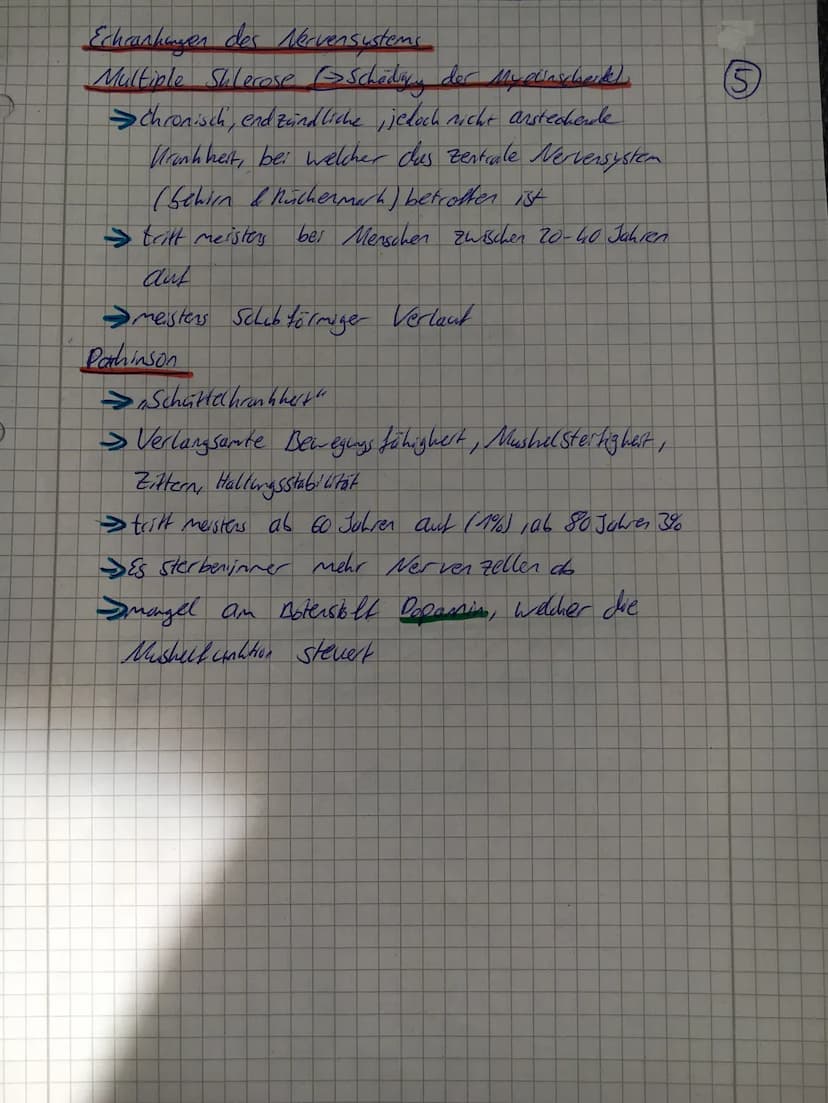 Erkrankungen des Nervensystems
Multiple Sklerose (→ Schädigung der Myelinscheide)
5
→ chronisch, endzündliche, jedoch nicht ansteckende
Krankheit, bei welcher das zentrale Nervensystem
(Gehirn & Rückenmark) betroffen ist
→ tritt meistens bei Menschen zwischen 20-40 Jahren
auf
→ meistens Schubförmiger Verlauf
Parkinson
→ „Schüttelkrankheit“
→ Verlangsamte Bewegungsfähigkeit, Muskelsteifigkeit,
Zittern, Haltungsstabilität
→ tritt meistens ab 60 Jahren auf (1%), ab 80 Jahren 3%
→ Es sterben immer mehr Nervenzellen ab
→ mangel am Botenstoff Dopamin, welcher die
Muskelfunktion steuert